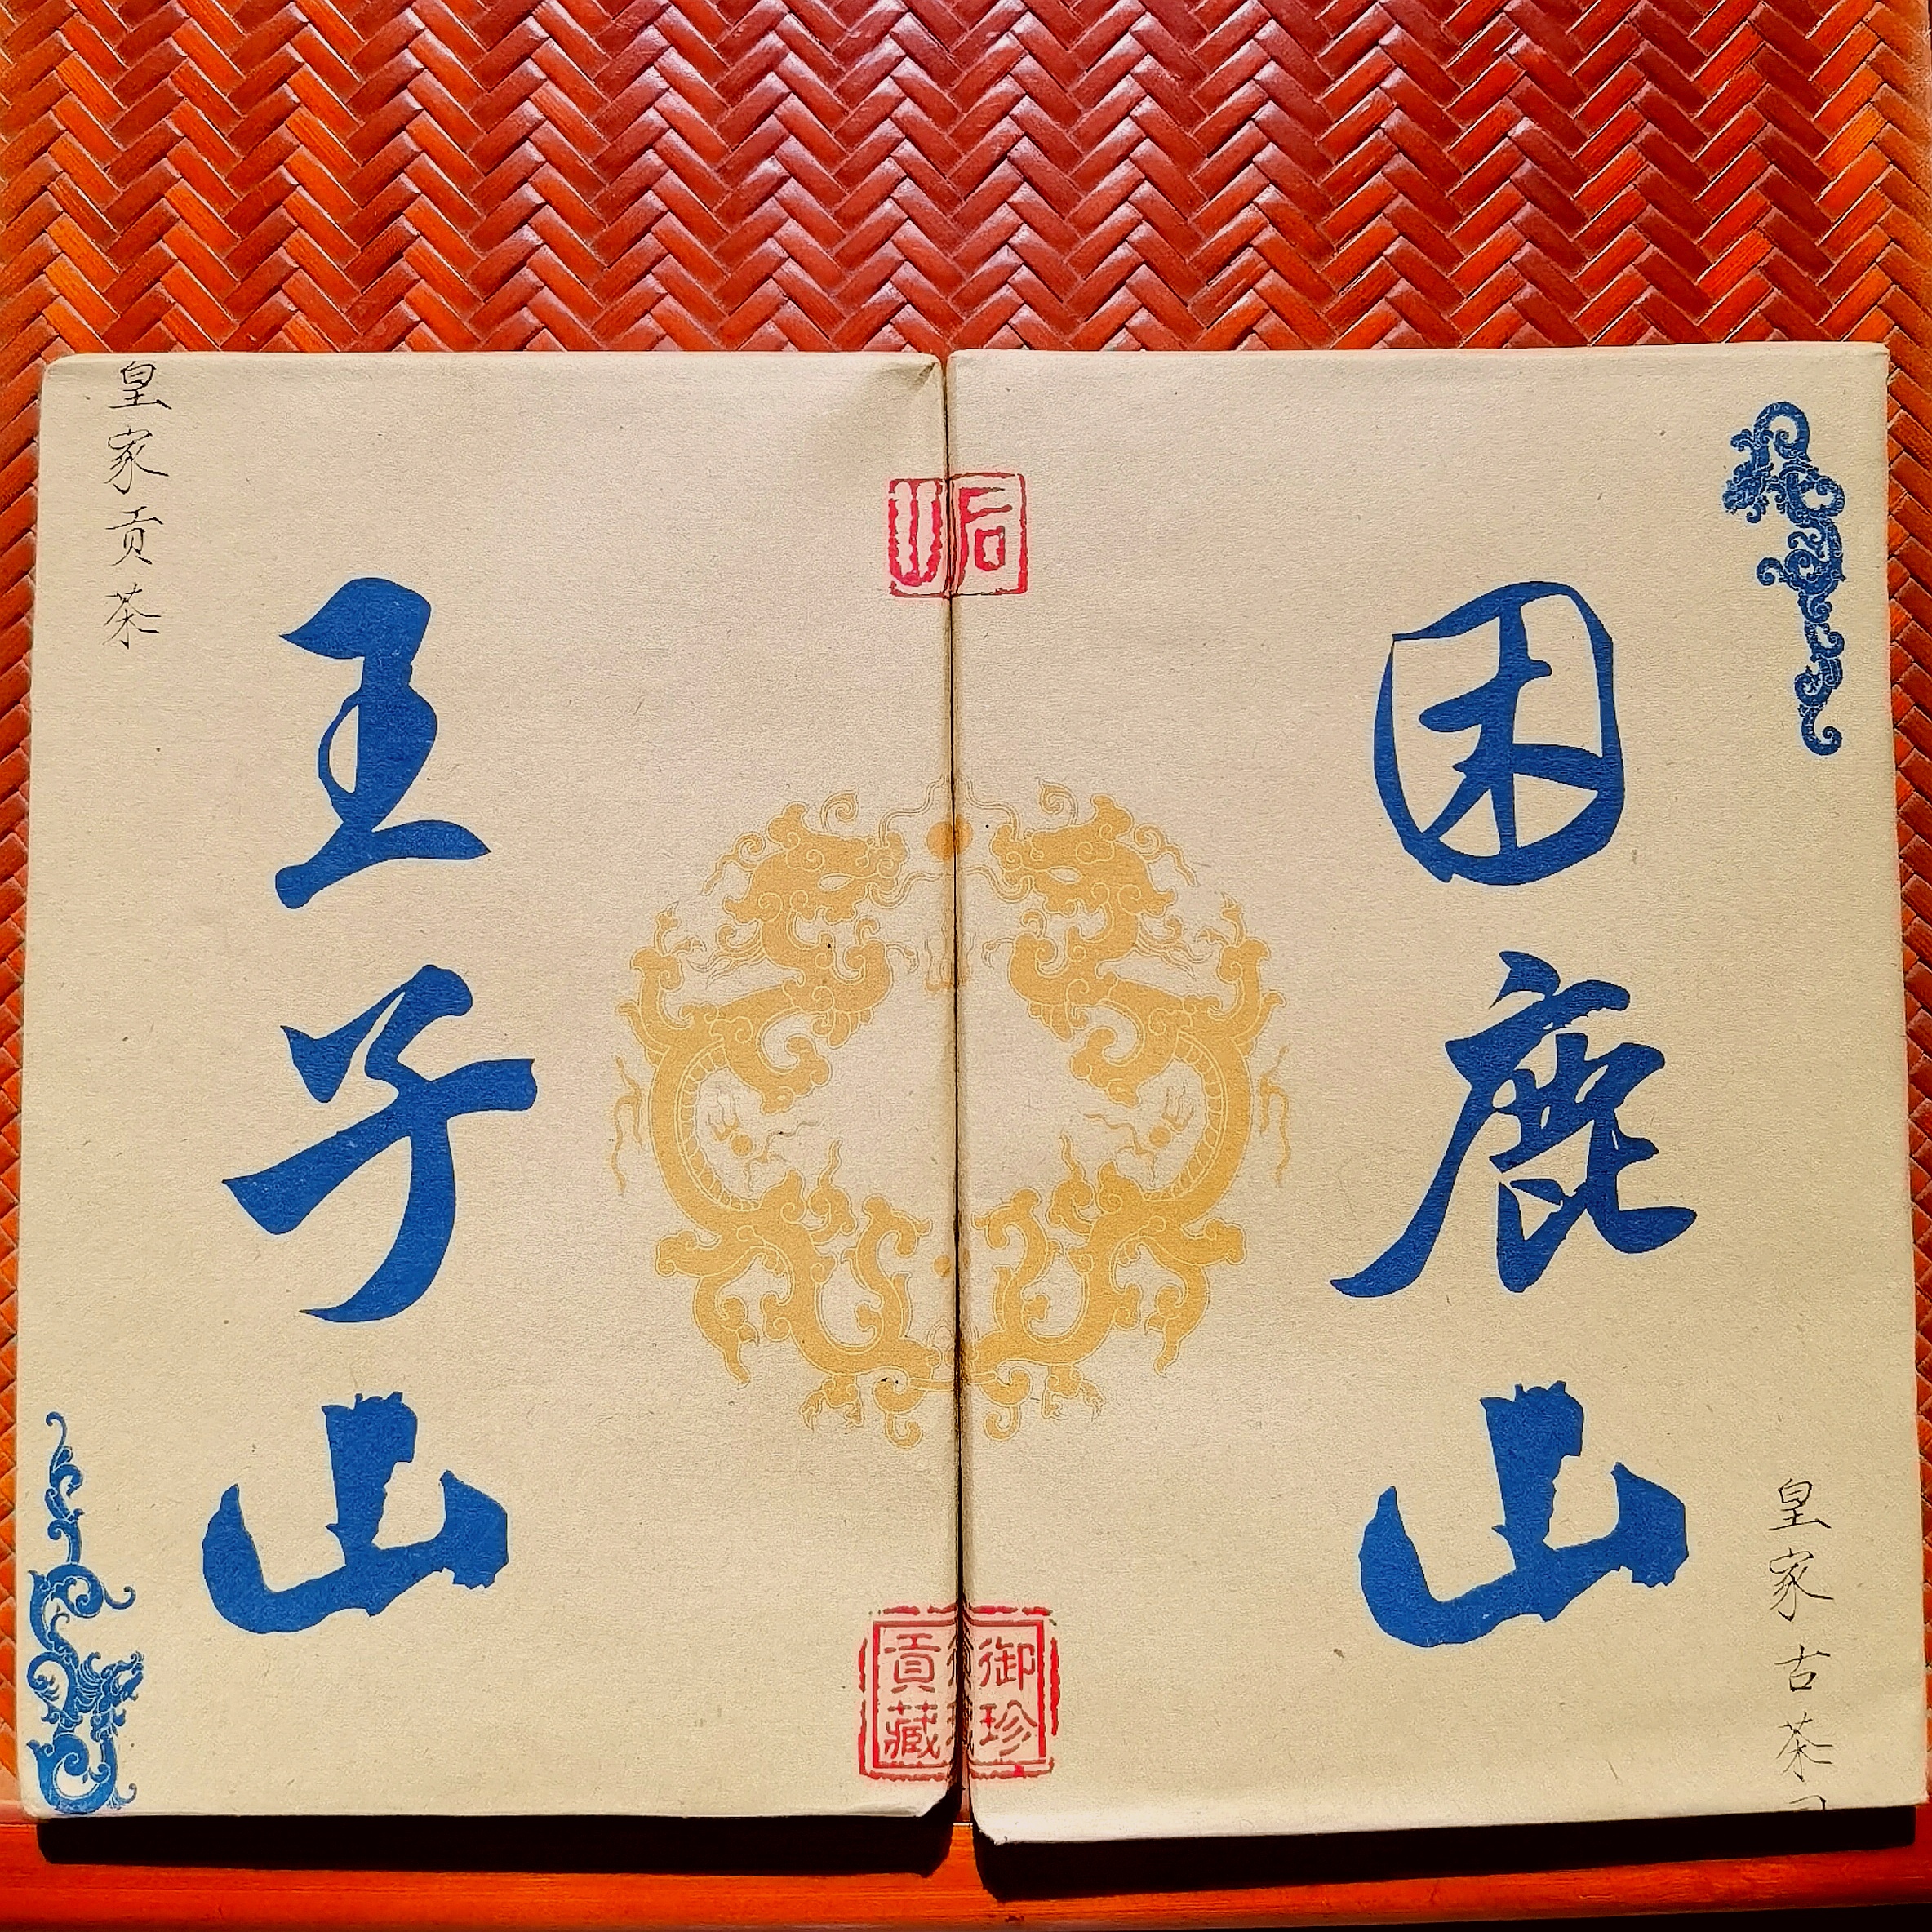 皇家古茶
困鹿山
御珍
貢藏
王子山
皇家贡茶